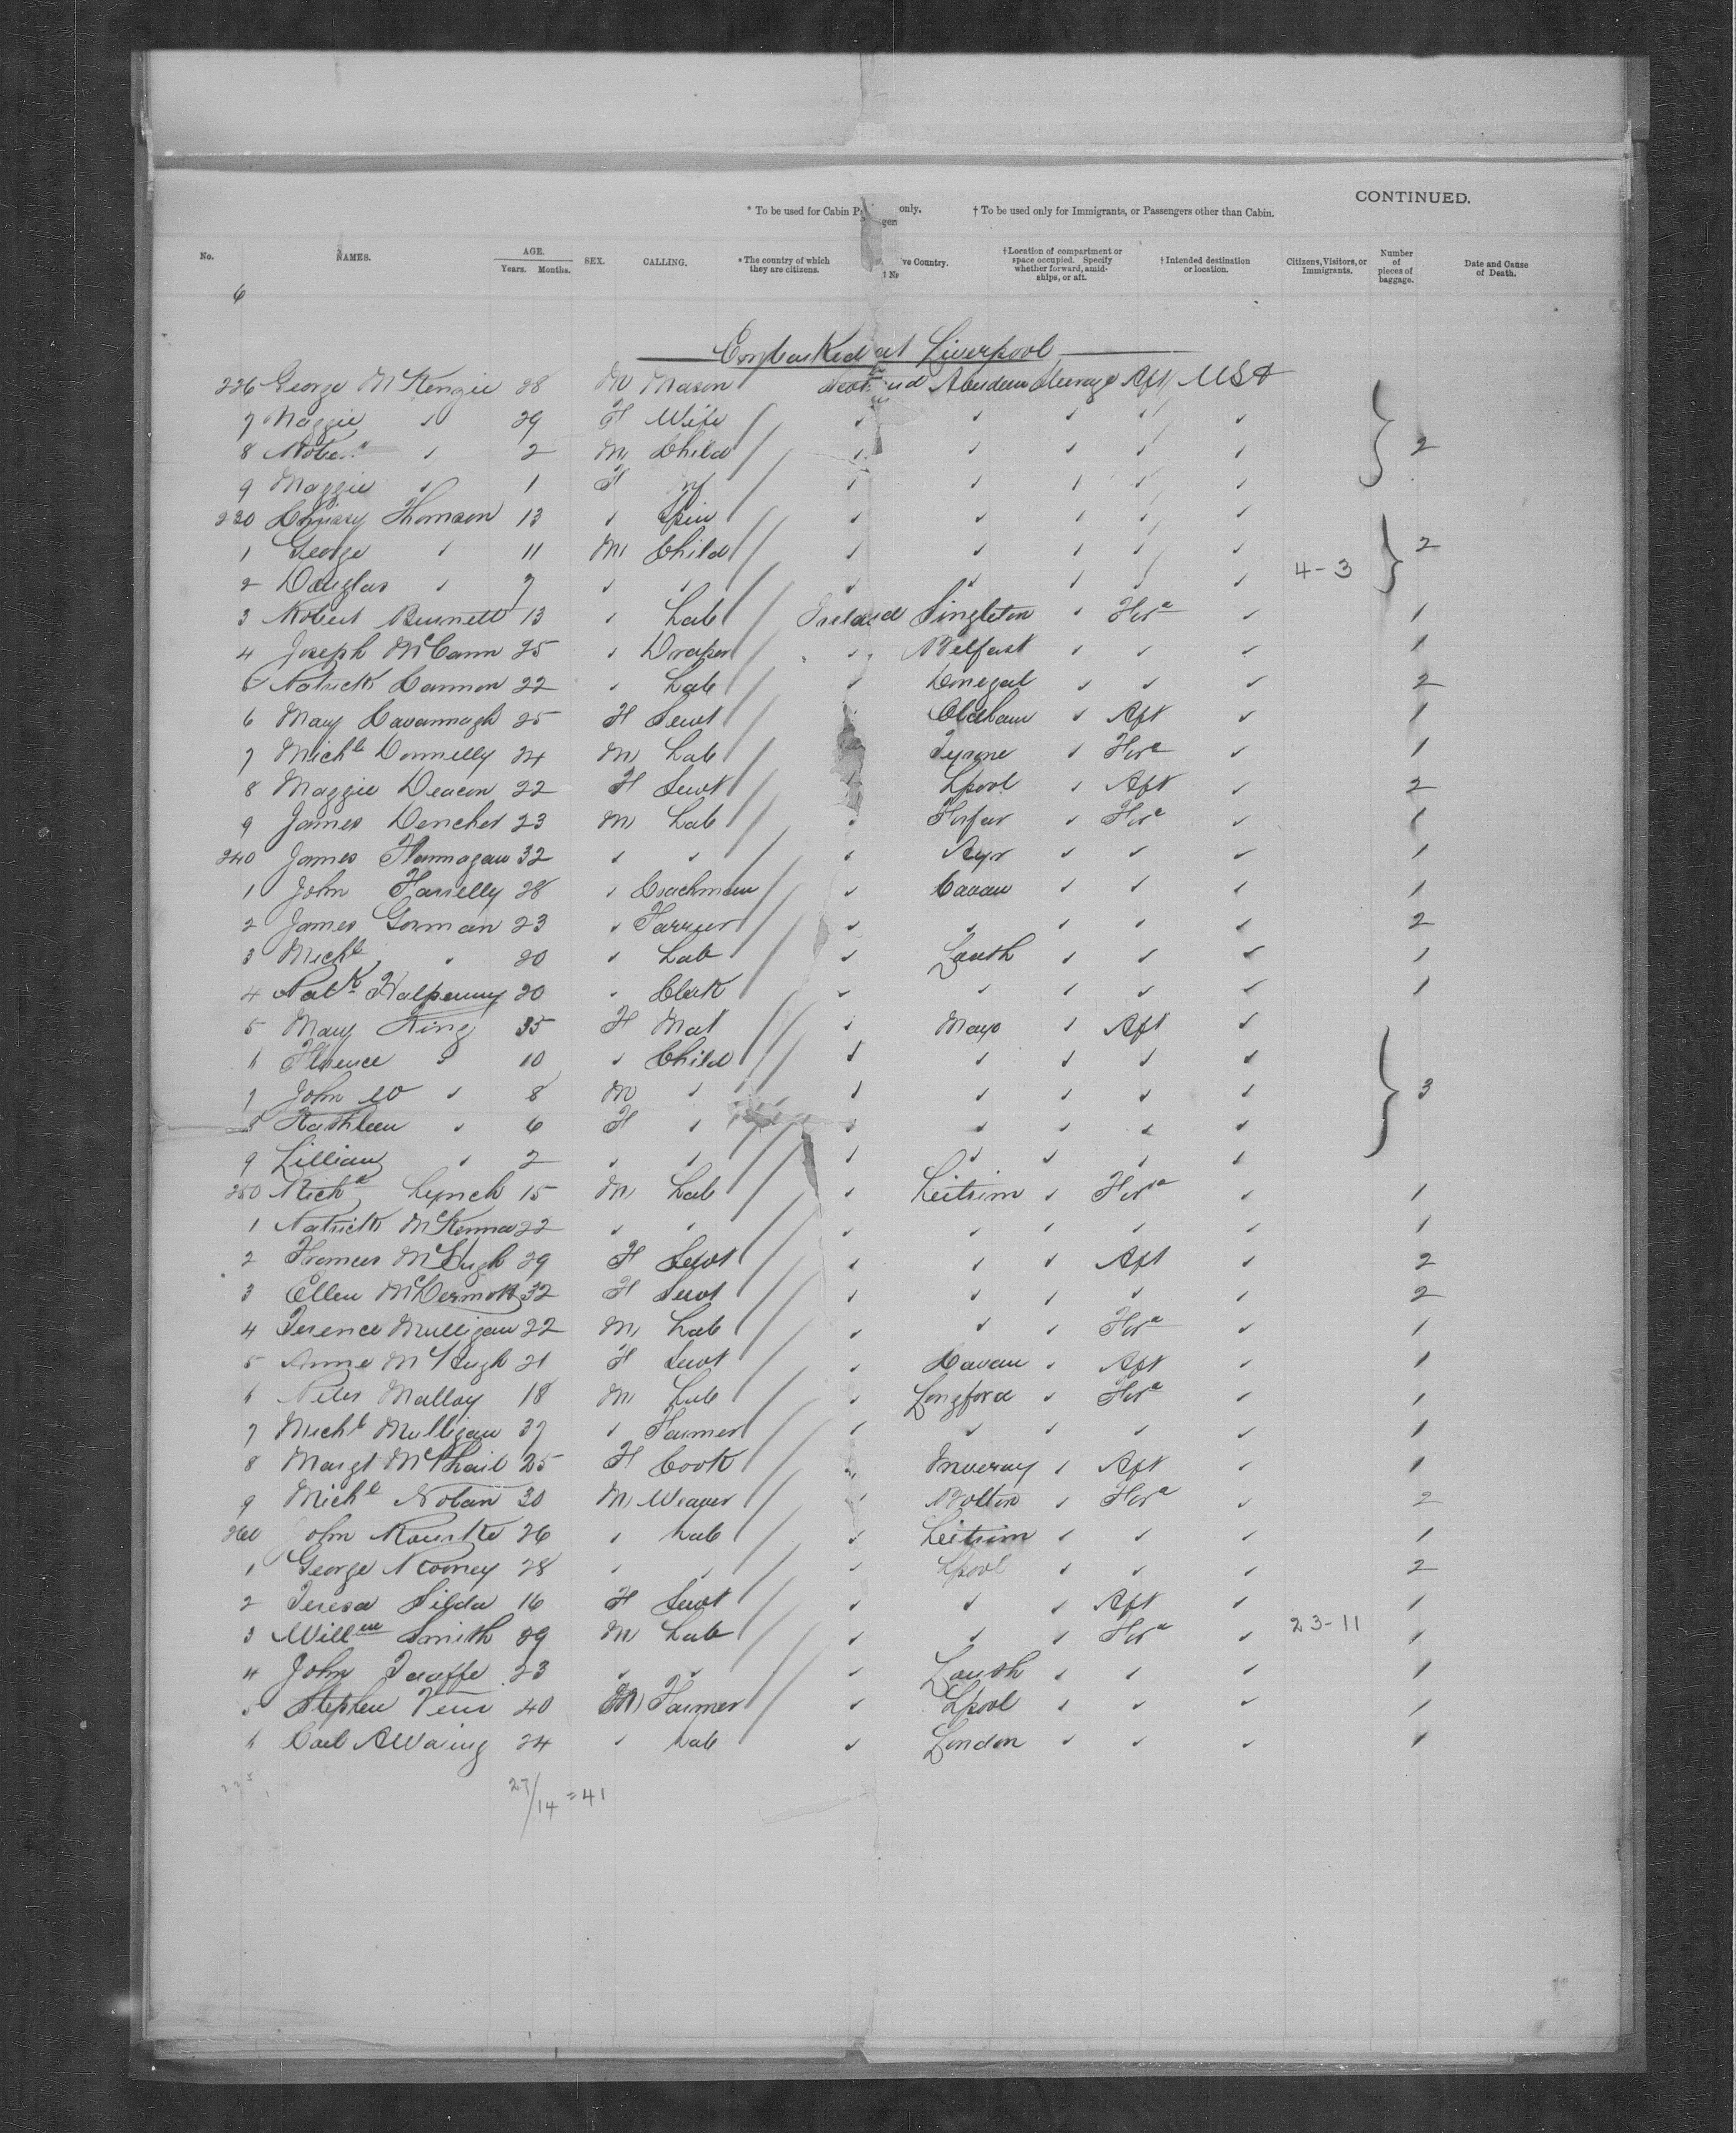 CONTINUED.
* To be used for Cabin Passengers only. † To be used only for Immigrants, or Passengers other than Cabin.
No. NAMES. AGE. Years. Months. SEX. CALLING. * The country of which they are citizens. ve Country. † Location of compartment or space occupied. Specify whether forward, amidships, or aft. † Intended destination or location. Citizens, Visitors, or Immigrants. Number of pieces of baggage. Date and Cause of Death.
6
Embarked at Liverpool
226 George McKenzie 28 M Mason Scotland Aberdeen Steerage Aft USA
7 Maggie " 29 F Wife " " " " "
8 " 2 M Child " " " " " 2
9 Maggie " 1 F Inf " " " " "
230 Chrissy Thomson 13 " Spin " " " " "
1 George " 11 M Child " " " " " 2
2 Douglas " 7 " " " " " " " 4-3
3 Robert Burnett 13 " Lab Ireland Singleton " For'd " 1
4 Joseph McCann 25 " Draper " Belfast " " " 1
5 Patrick Cannon 22 " Lab " Donegal " " " 2
6 Mary Cavannagh 25 F Servt Oldham " Aft " 1
7 Michl Donnelly 24 M Lab Tyrone " For'd " 1
8 Maggie Deacon 22 F Servt Lpool " Aft " 2
9 James Dencher 23 M Lab " Forfar " For'd " 1
240 James Flannagan 32 " " " Ayr " " " 1
1 John Farrelly 28 " Coachman " Cavan " " " 1
2 James Gorman 23 " Farrier " " " " " 2
3 Michl " 20 " Lab " Louth " " " 1
4 Patk Halpenny 20 " Clerk " " " " " 1
5 Mary King 35 F Mat " Mayo " Aft "
6 Florence " 10 " Child " " " " "
7 John W " 8 M " " " " " " 3
8 Kathleen " 6 F " " " " " "
9 Lillian " 2 " " " " " " "
250 Richd Lynch 15 M Lab " Leitrim " For'd " 1
1 Patrick McKenna 22 " " " " " " " 1
2 Frances McHugh 29 F Servt " " " Aft " 2
3 Ellen McDermott 32 F Servt " " " " " 2
4 Terence Mulligan 22 M Lab " " " For'd " 1
5 Annie McHugh 21 F Servt " Cavan " Aft " 1
6 Peter Malloy 18 M Lab " Longford " For'd " 1
7 Michl Mulligan 37 " Farmer " " " " " 1
8 Margt McPhail 25 F Cook " Inveray " Aft " 1
9 Michl Nolan 30 M Weaver " Bolton " For'd " 2
260 John Rourke 26 " Lab " Leitrim " " " 1
1 George Rooney 28 " " " Lpool " " " 2
2 Teresa Silda 16 F Servt " " " Aft " 1
3 Willm Smith 29 M Lab " " " For'd " 23-11 1
4 John Taaffe 23 " " " Louth " " " 1
5 Stephen 40 M Farmer " Lpool " " " 1
6 24 " Lab " London " " " 1
27/14 = 41